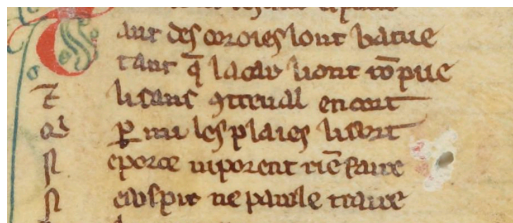 T ant des coroies lont batue
tant q̃ lacar liont rõpue
⁊ lisans ꝯtreual encort
Qi ꝑ mi lesplaies lisort
N eporce niporent riẽ faire
N esospir ne parole traire